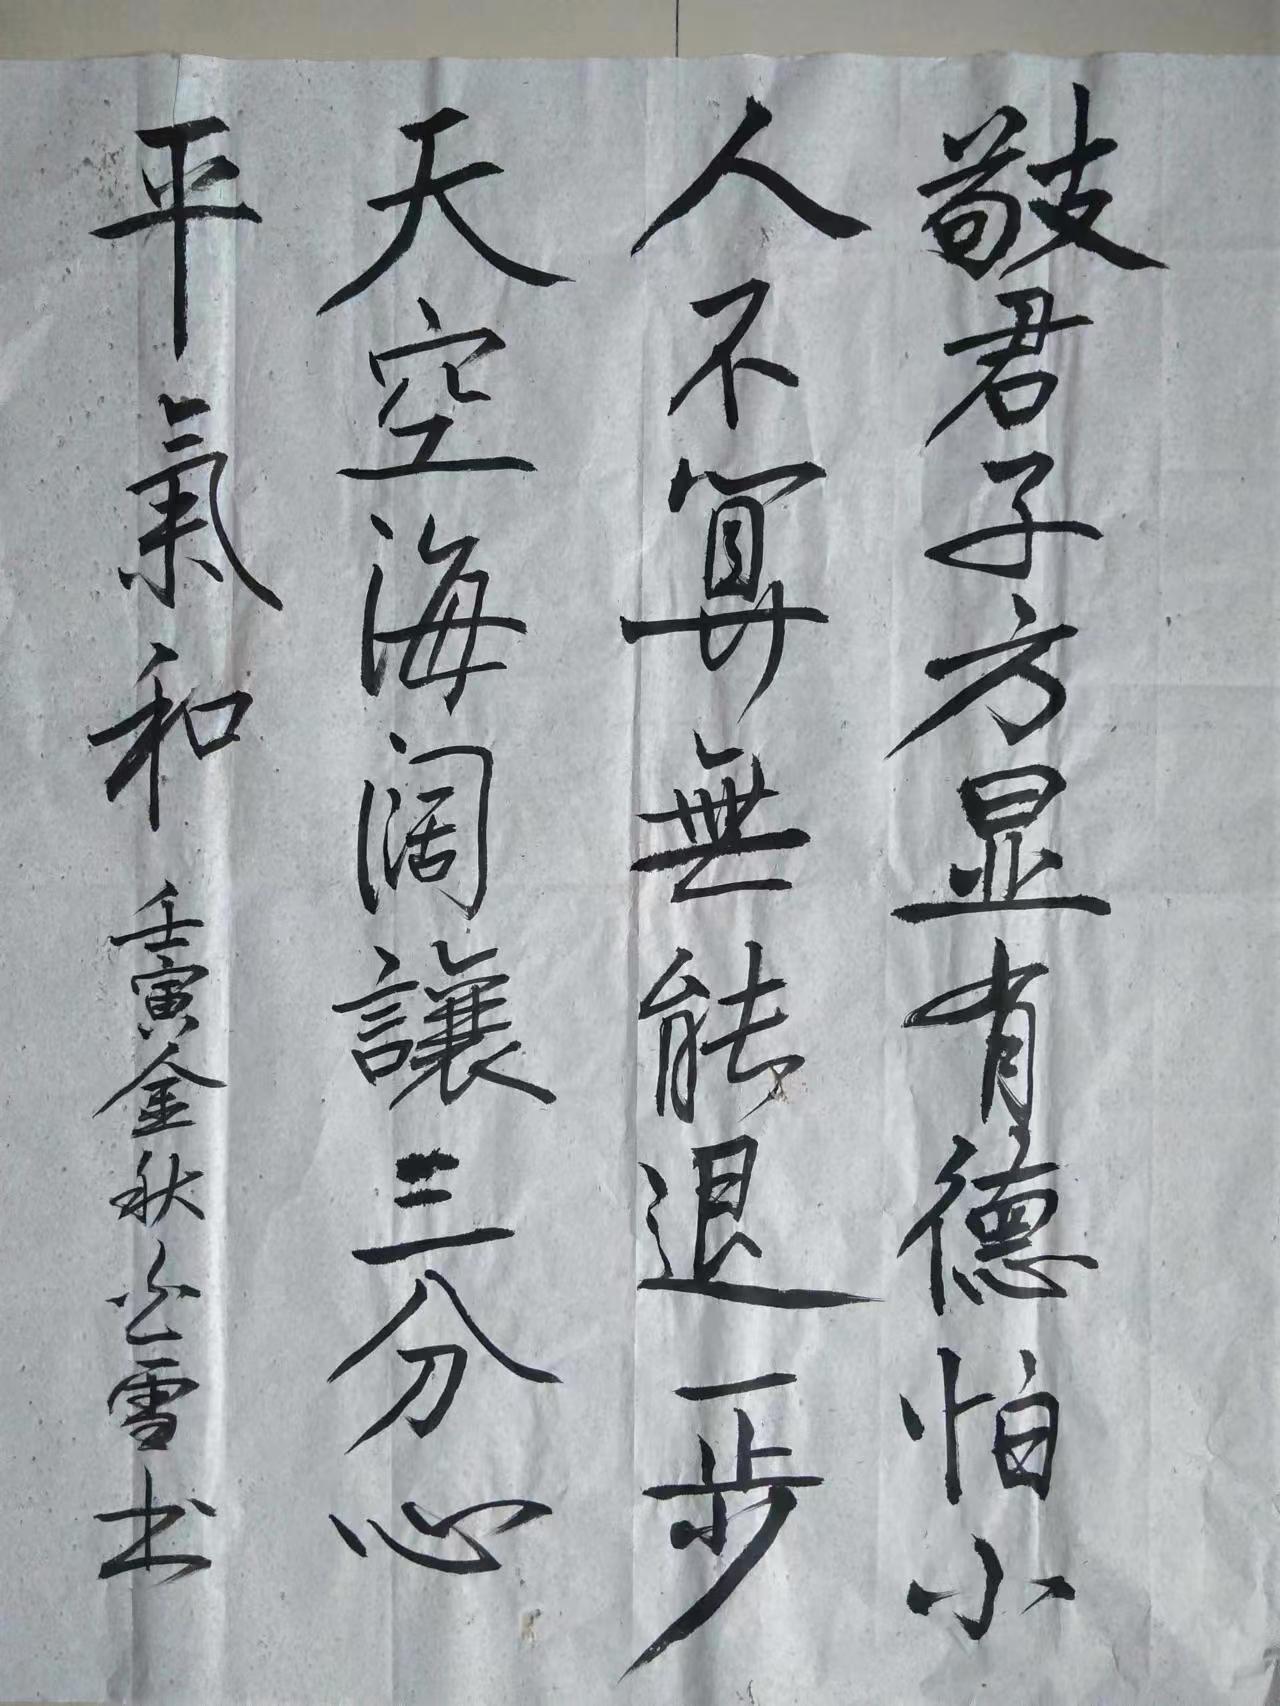 敬君子方显有德怕小
人不算無能退一步
天空海阔讓三分心
平氣和 壬寅金秋雪书